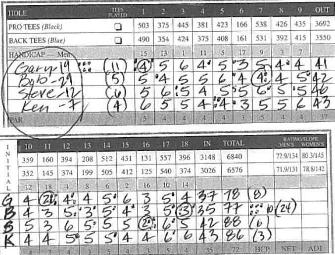 HOLE TEES PLAYED 1 2 3 4 5 6 7 8 9 OUT
PRO TEES (Black) 503 375 445 381 423 166 538 426 435 3692
BACK TEES (Blue) 490 354 424 375 408 161 531 392 415 3550
HANDICAP Men 15 13 1 11 5 17
Gary (11) 4 5 6 4 5 3 5 4 4 41
Bob (5) 5 4 5 5 6 4 4 4 5 42
Steve-12 (6) 5 6 5 4 5 5 6 5 5 46
Ken - 7 (4) 6 5 5 4 4 3 5 5 6 43
PAR
INITIAL 10 11 12 13 14 15 16 17 18 IN TOTAL RATING/SLOPE MEN'S WOMEN'S
359 160 394 208 512 451 131 557 396 3148 6840 72.9/134 80.3/145
352 145 374 199 505 412 125 540 374 3026 6576 71.9/131 78.8/142
12 18 4 8 6 2 16 10 14
G 4 2 4 4 5 6 3 5 4 37 78 (8)
B 4 3 5 3 5 4 3 5 3 35 77 (24)
S 5 3 6 5 5 42 88 (6)
K 4 4 5 5 5 4 4 6 6 43 86 (3)
HCP NET ADJ